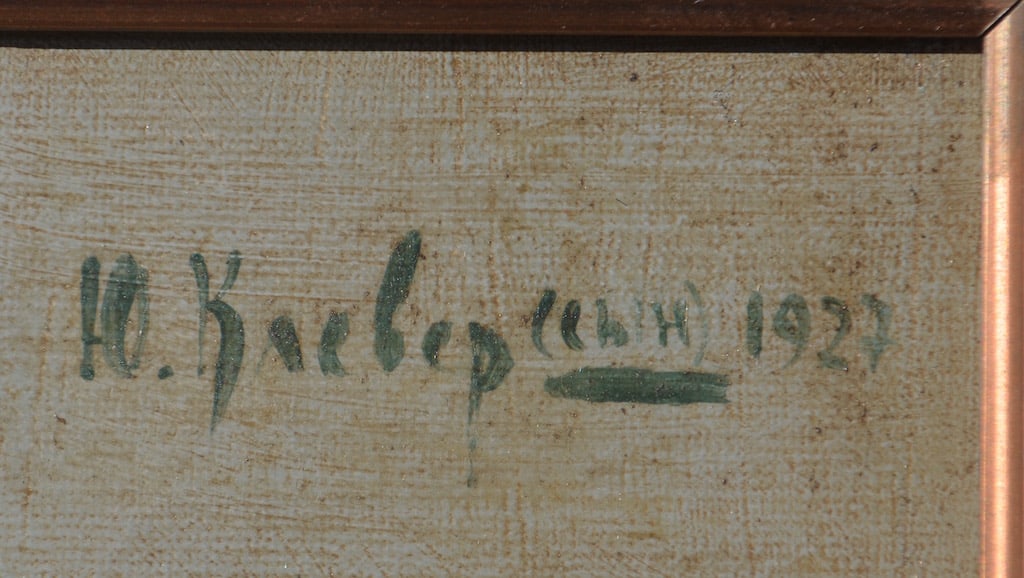 Ю. Клевер (сын) 1927